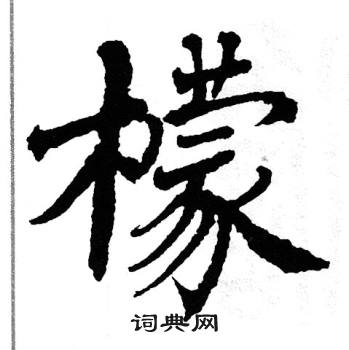 檬
词典网